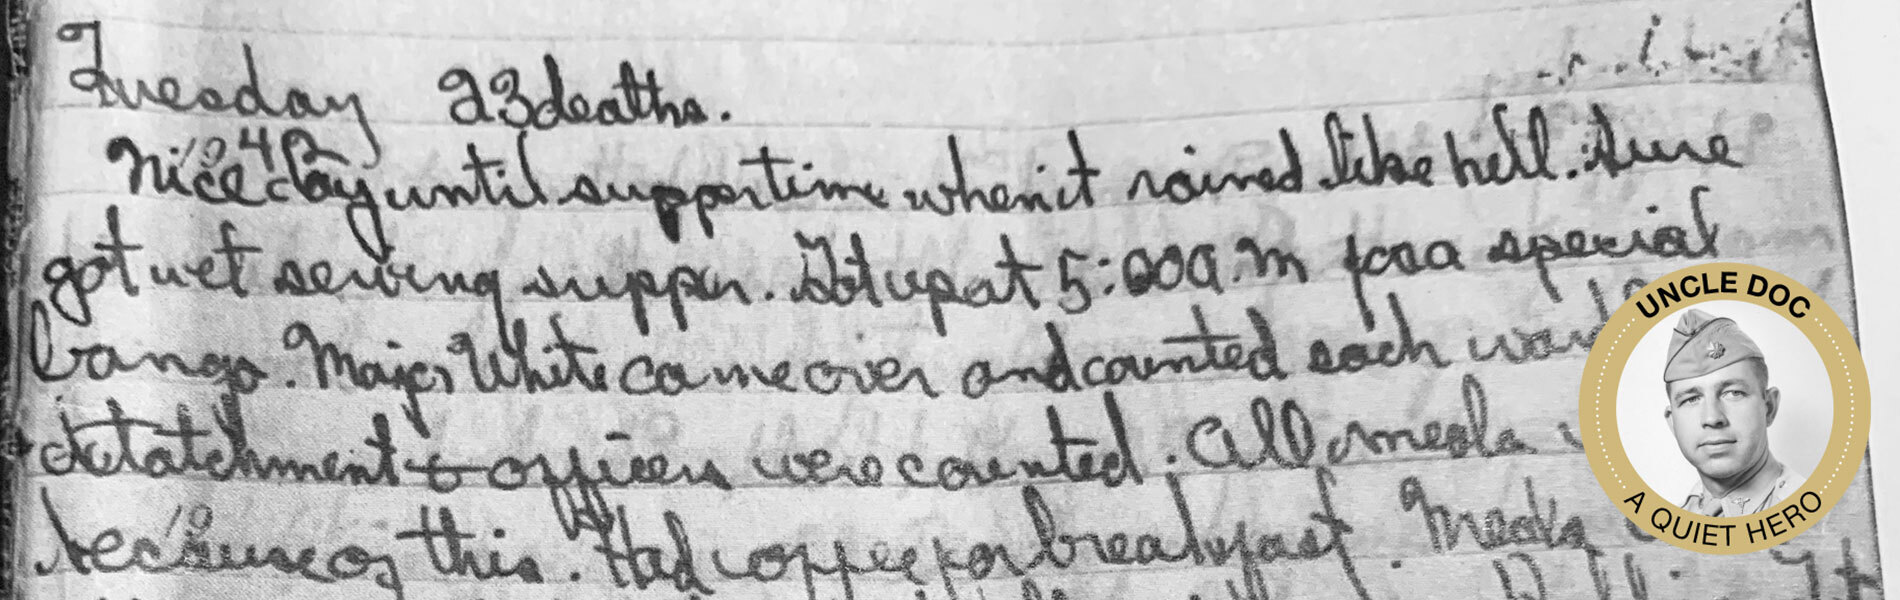 Tuesday 23 deaths.
Nice day until suppertime when it rained like hell. Sure
got wet serving supper. Got up at 5:00 a.m for a special
bango. Major White came over and counted each ward
detatchment & officers were counted. All meals
because of this. Had coffee for breakfast. Meals
UNCLE DOC
A QUIET HERO